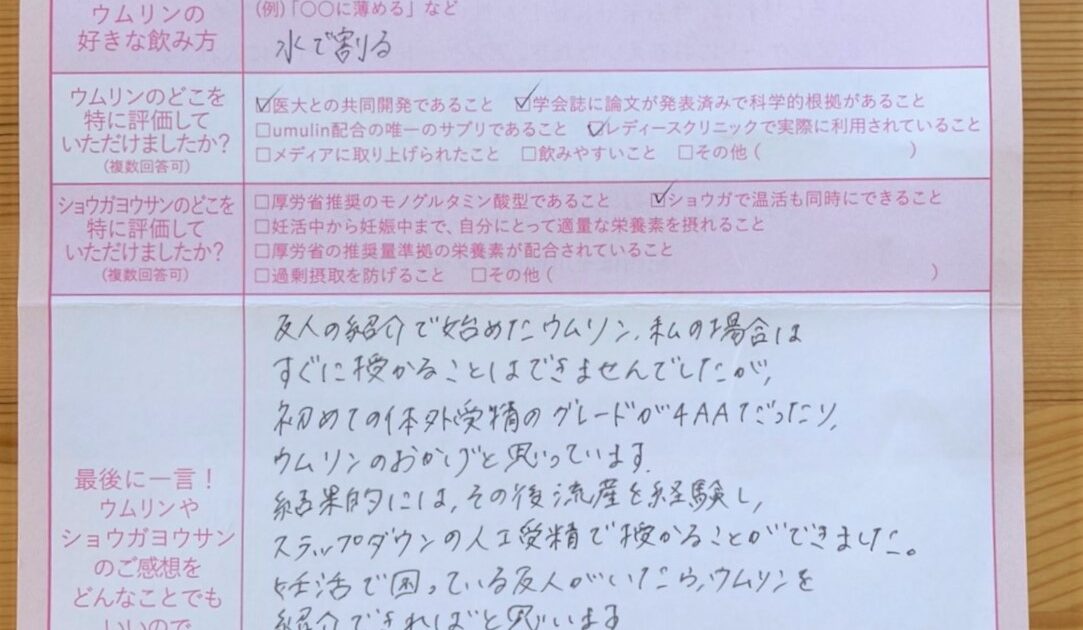 ウムリンの
好きな飲み方
(例)「〇〇に薄める」など
水で割る
ウムリンのどこを
特に評価して
いただけましたか?
(複数回答可)
☑医大との共同開発であること ☑学会誌に論文が発表済みで科学的根拠があること
□umulin配合の唯一のサプリであること ☑レディースクリニックで実際に利用されていること
□メディアに取り上げられたこと □飲みやすいこと □その他( )
ショウガヨウサンのどこを
特に評価して
いただけましたか?
(複数回答可)
□厚労省推奨のモノグルタミン酸型であること ☑ショウガで温活も同時にできること
□妊活中から妊娠中まで、自分にとって適量な栄養素を摂れること
□厚労省の推奨量準拠の栄養素が配合されていること
□過剰摂取を防げること □その他( )
最後に一言!
ウムリンや
ショウガヨウサン
のご感想を
どんなことでも
いいので
友人の紹介で始めたウムリン、私の場合は
すぐに授かることはできませんでしたが、
初めての体外受精のグレードが4AAだったり、
ウムリンのおかげと思っています。
結果的には、その後流産を経験し、
ステップダウンの人工受精で授かることができました。
妊活で困っている友人がいたら、ウムリンを
紹介できればと思います